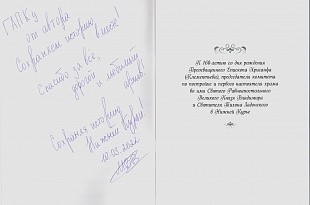 ГАРКу
от автора
Сохраняем историю
вместе!
Спасибо за все,
дорогой и любимый
архив!
Сохраняя историю
Нижней Курьи!
10.03.2022
К 160-летию со дня рождения
Преосвященного Епископа Хрисанфа
(Клементьева), председателя комитета
по постройке и первого настоятеля храма
во имя Святого Равноапостольного
Великого Князя Владимира
и Святителя Тихона Задонского
в Нижней Курье